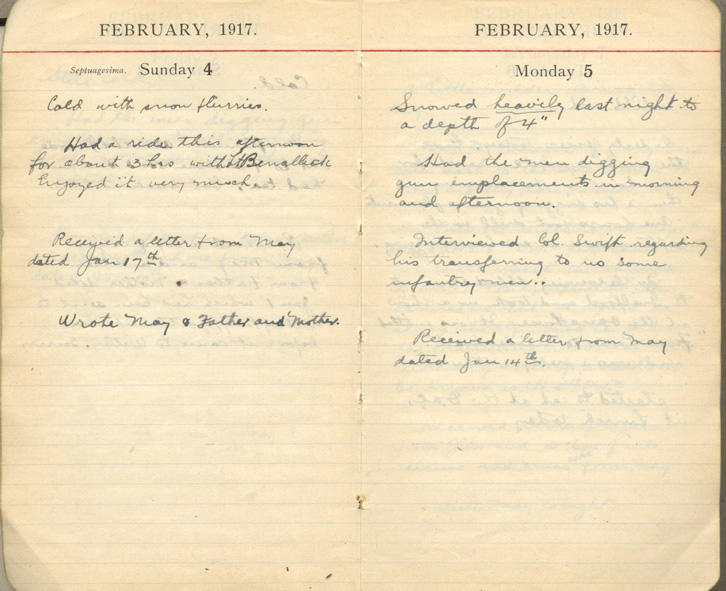 FEBRUARY, 1917.
Septuagesima. Sunday 4
Cold with snow flurries.
Had a ride this afternoon
for about 3 hrs with
Enjoyed it very much.
Received a letter from May
dated Jan 17th.
Wrote May & Father and Mother.
FEBRUARY, 1917.
Monday 5
Snowed heavily last night to
a depth of 4"
Had the men digging
gun emplacements in morning
and afternoon.
Interviewed Col. Swift regarding
his transferring to us some
infantrymen..
Received a letter from May
dated Jan 14th.